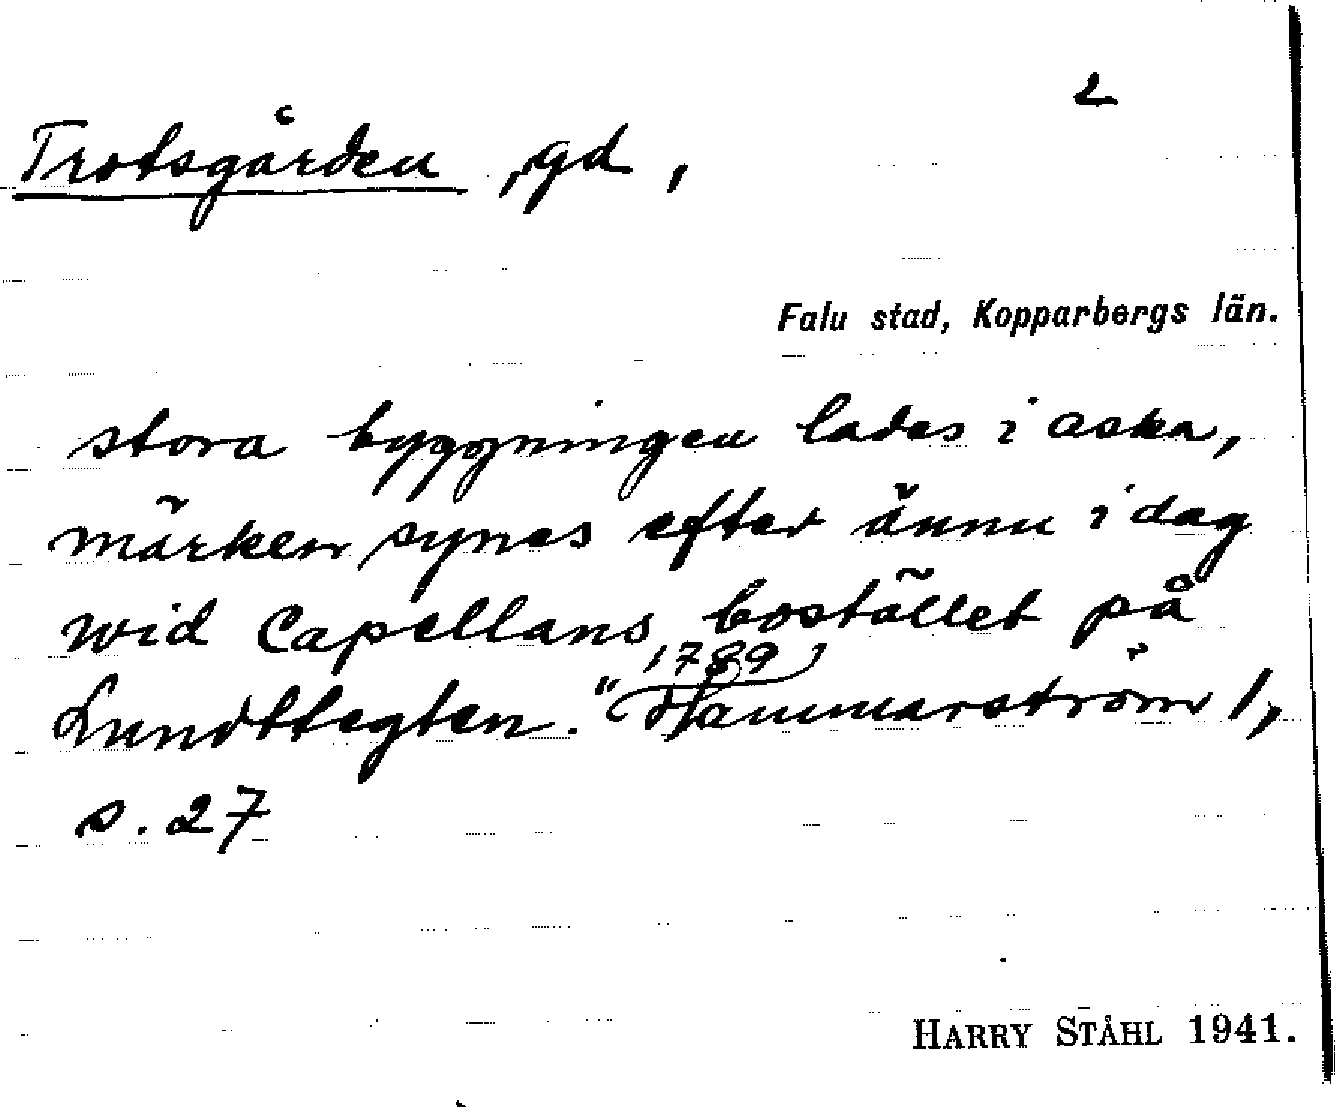 2
Trotsgården, gd,
Falu stad, Kopparbergs län.
stora byggningen lades i aska,
märken synes efter ännu i dag
wid Capellans bostället på
Lundttegten." (Hammarström 1,
1789
s. 27
HARRY STÅHL 1941.